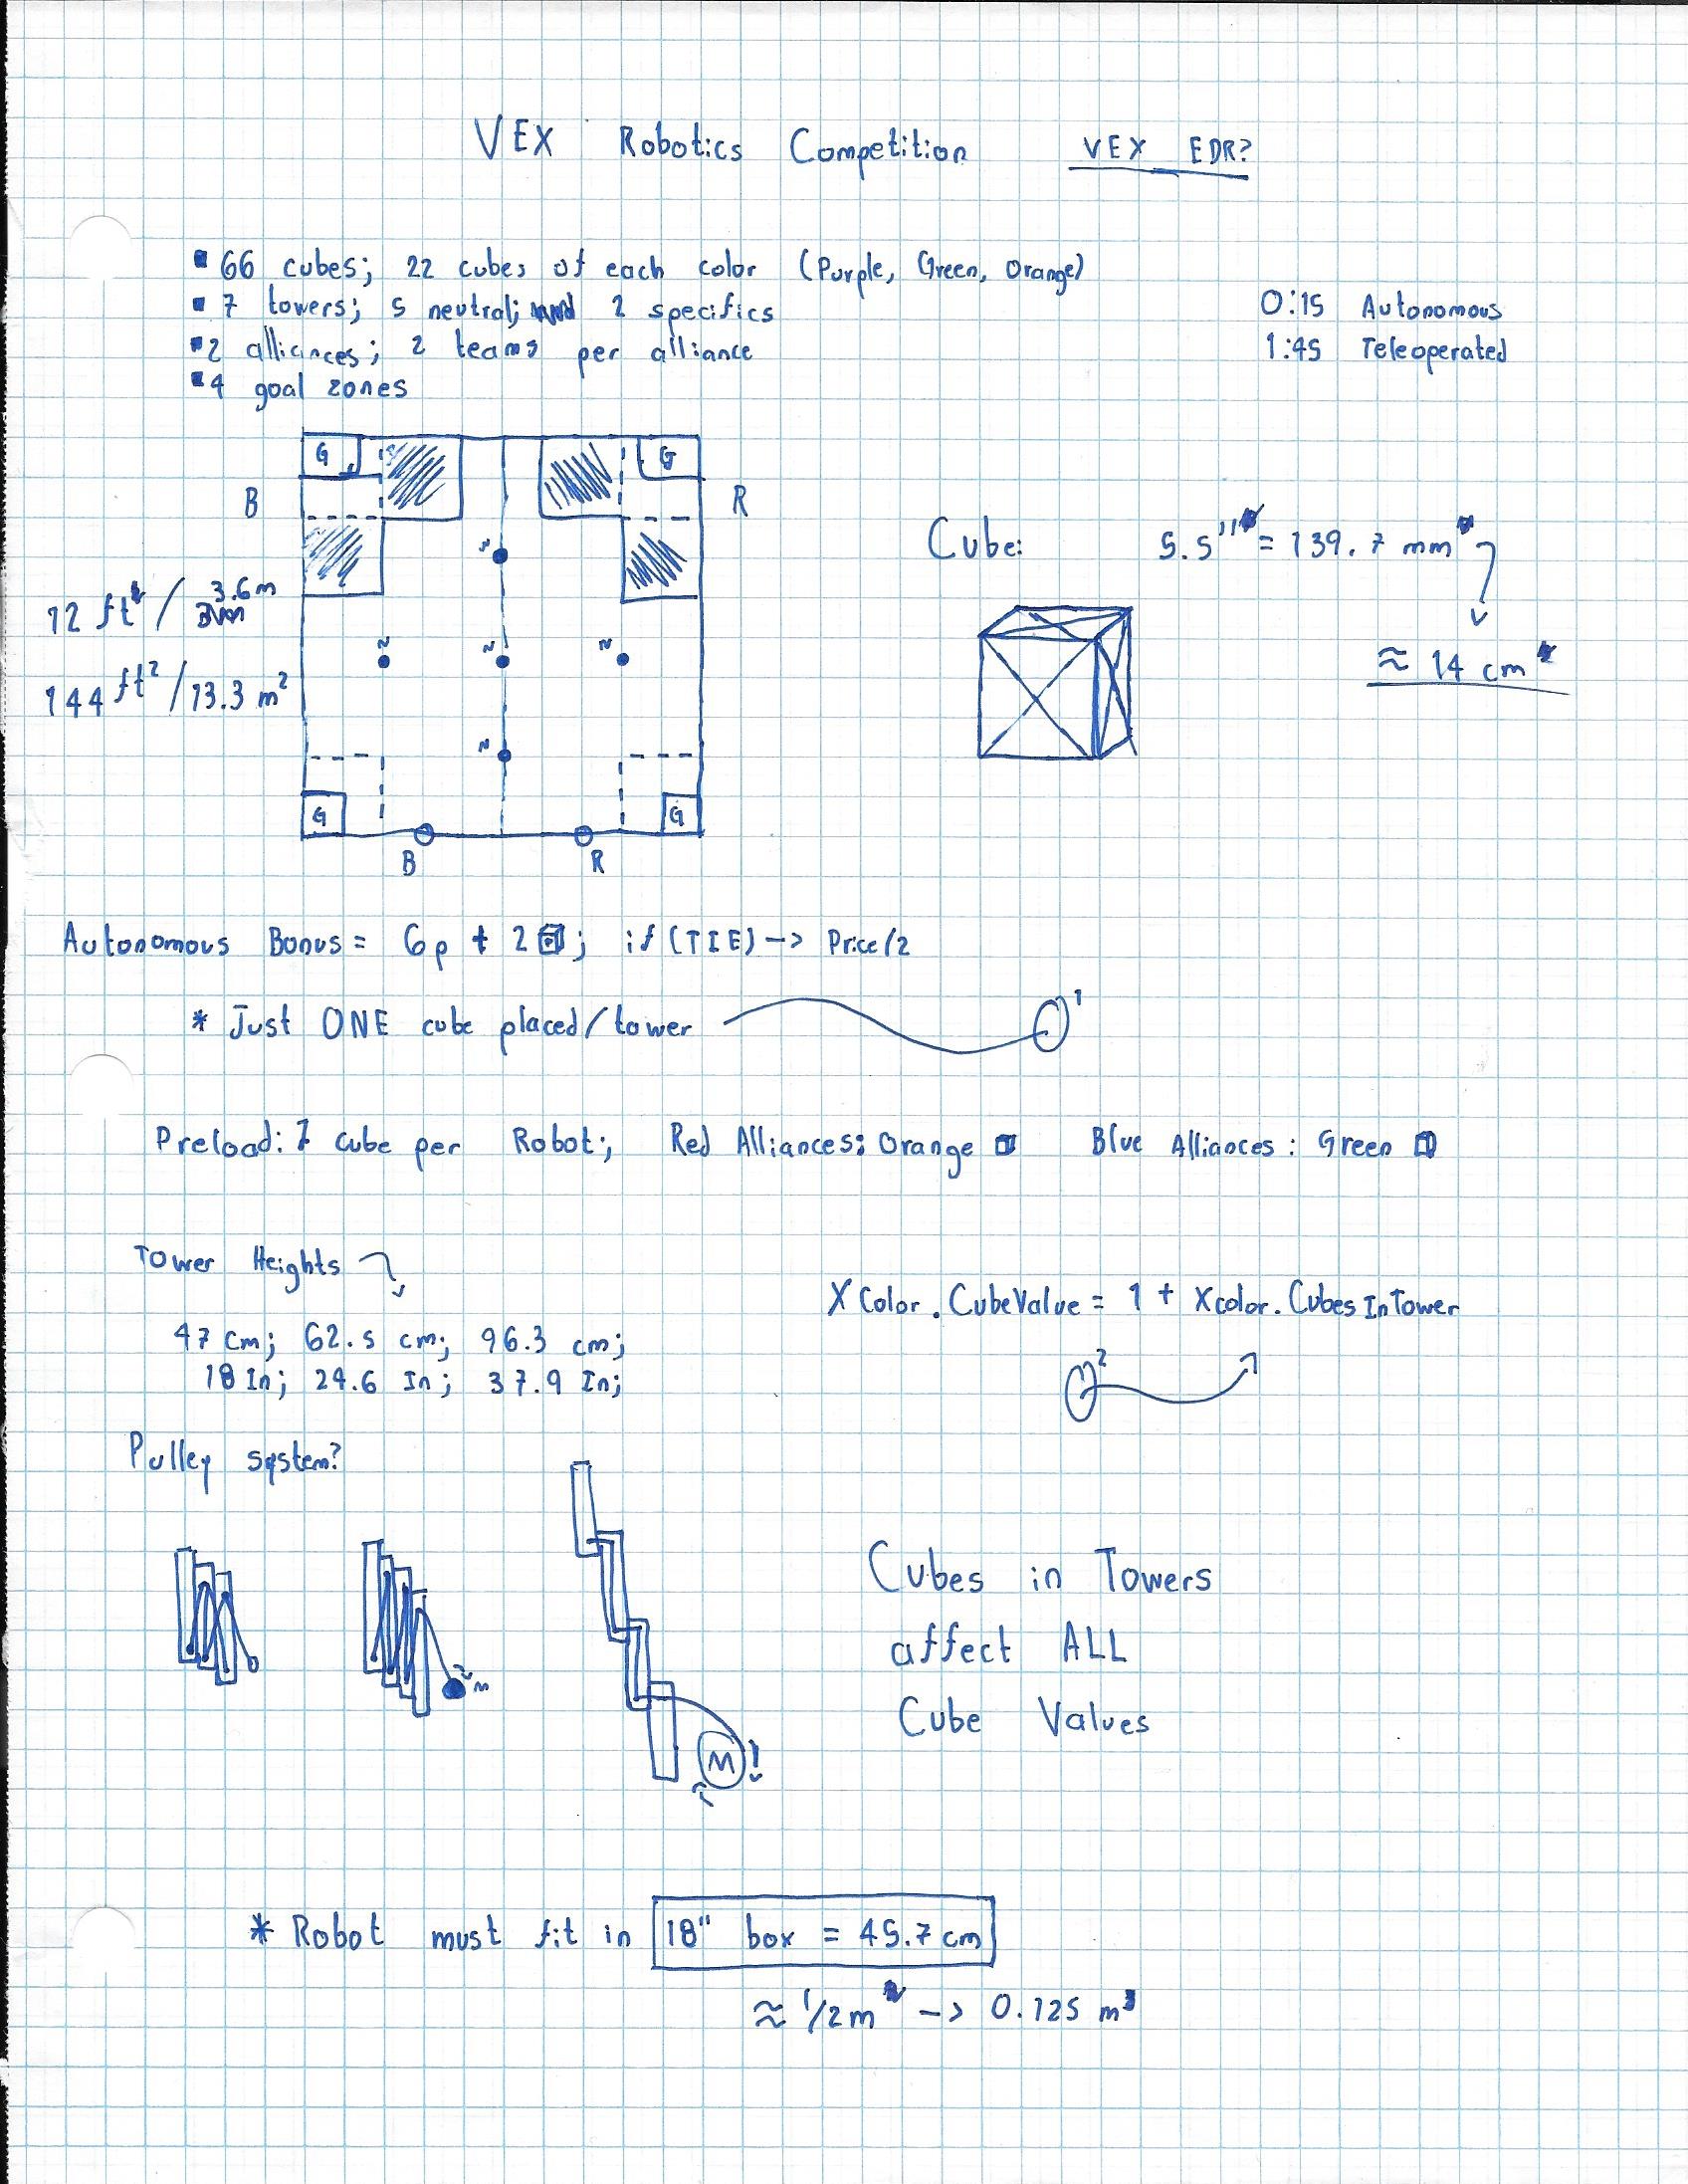 VEX Robotics Competition VEX EDR?
▪ 66 cubes; 22 cubes of each color (Purple, Green, Orange)
▪ 7 towers; 5 neutral; 2 specifics
▪ 2 alliances; 2 teams per alliance
▪ 4 goal zones
0:15 Autonomous
1:45 Teleoperated
G G
B R
N
N N N
N
G G
B R
12 ft / 3.6m
144 ft² / 13.3 m²
Cube: 5.5" = 139.7 mm
≈ 14 cm
Autonomous Bonus = 6p + 2 ; if (TIE) -> Price/2
* Just ONE cube placed/tower 1
Preload: 1 cube per Robot; Red Alliances: Orange Blue Alliances: Green
Tower Heights
47 cm; 62.5 cm; 96.3 cm;
18 In; 24.6 In; 37.9 In;
XColor.CubeValue = 1 + Xcolor.CubesInTower
2
Pulley system?
M
M!
Cubes in Towers
affect ALL
Cube Values
* Robot must fit in 18" box = 45.7 cm
≈ 1/2 m -> 0.125 m³